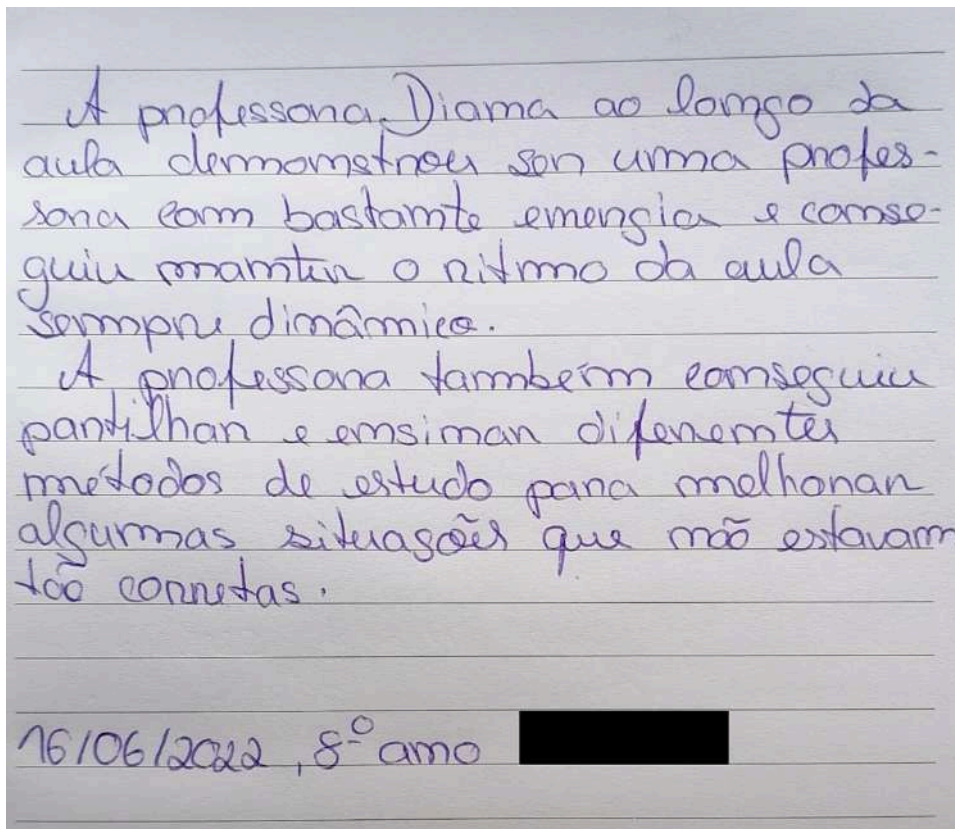 A professora Diana ao longo da
aula demonstrou ser uma profes-
sora com bastante energia e conse-
guiu manter o ritmo da aula
sempre dinâmico.
A professora também conseguiu
partilhar e ensinar diferentes
métodos de estudo para melhorar
algumas situações que não estavam
tão corretas.
16/06/2022, 8º ano